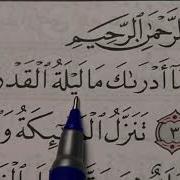 الرَّحْمَٰنِ الرَّحِيمِ
مَآ أَدْرَىٰكَ مَا لَيْلَةُ الْقَدْرِ
٣ تَنَزَّلُ الْمَلَٰٓئِكَةُ وَ